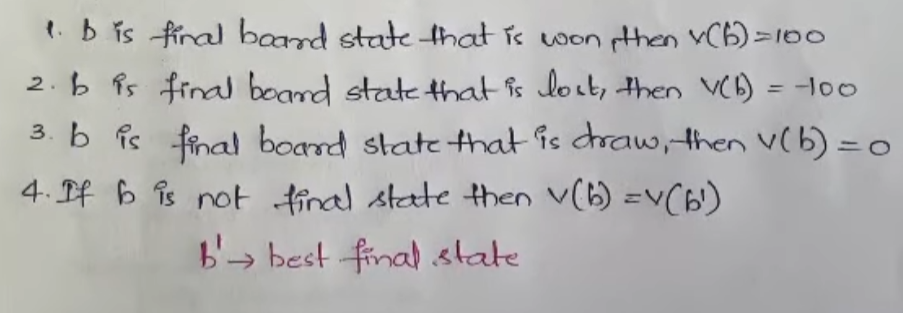 1. b is final board state that is won, then v(b)=100
2. b is final board state that is lost, then v(b) = -100
3. b is final board state that is draw, then v(b) = 0
4. If b is not final state then v(b) = v(b')
b' → best final state